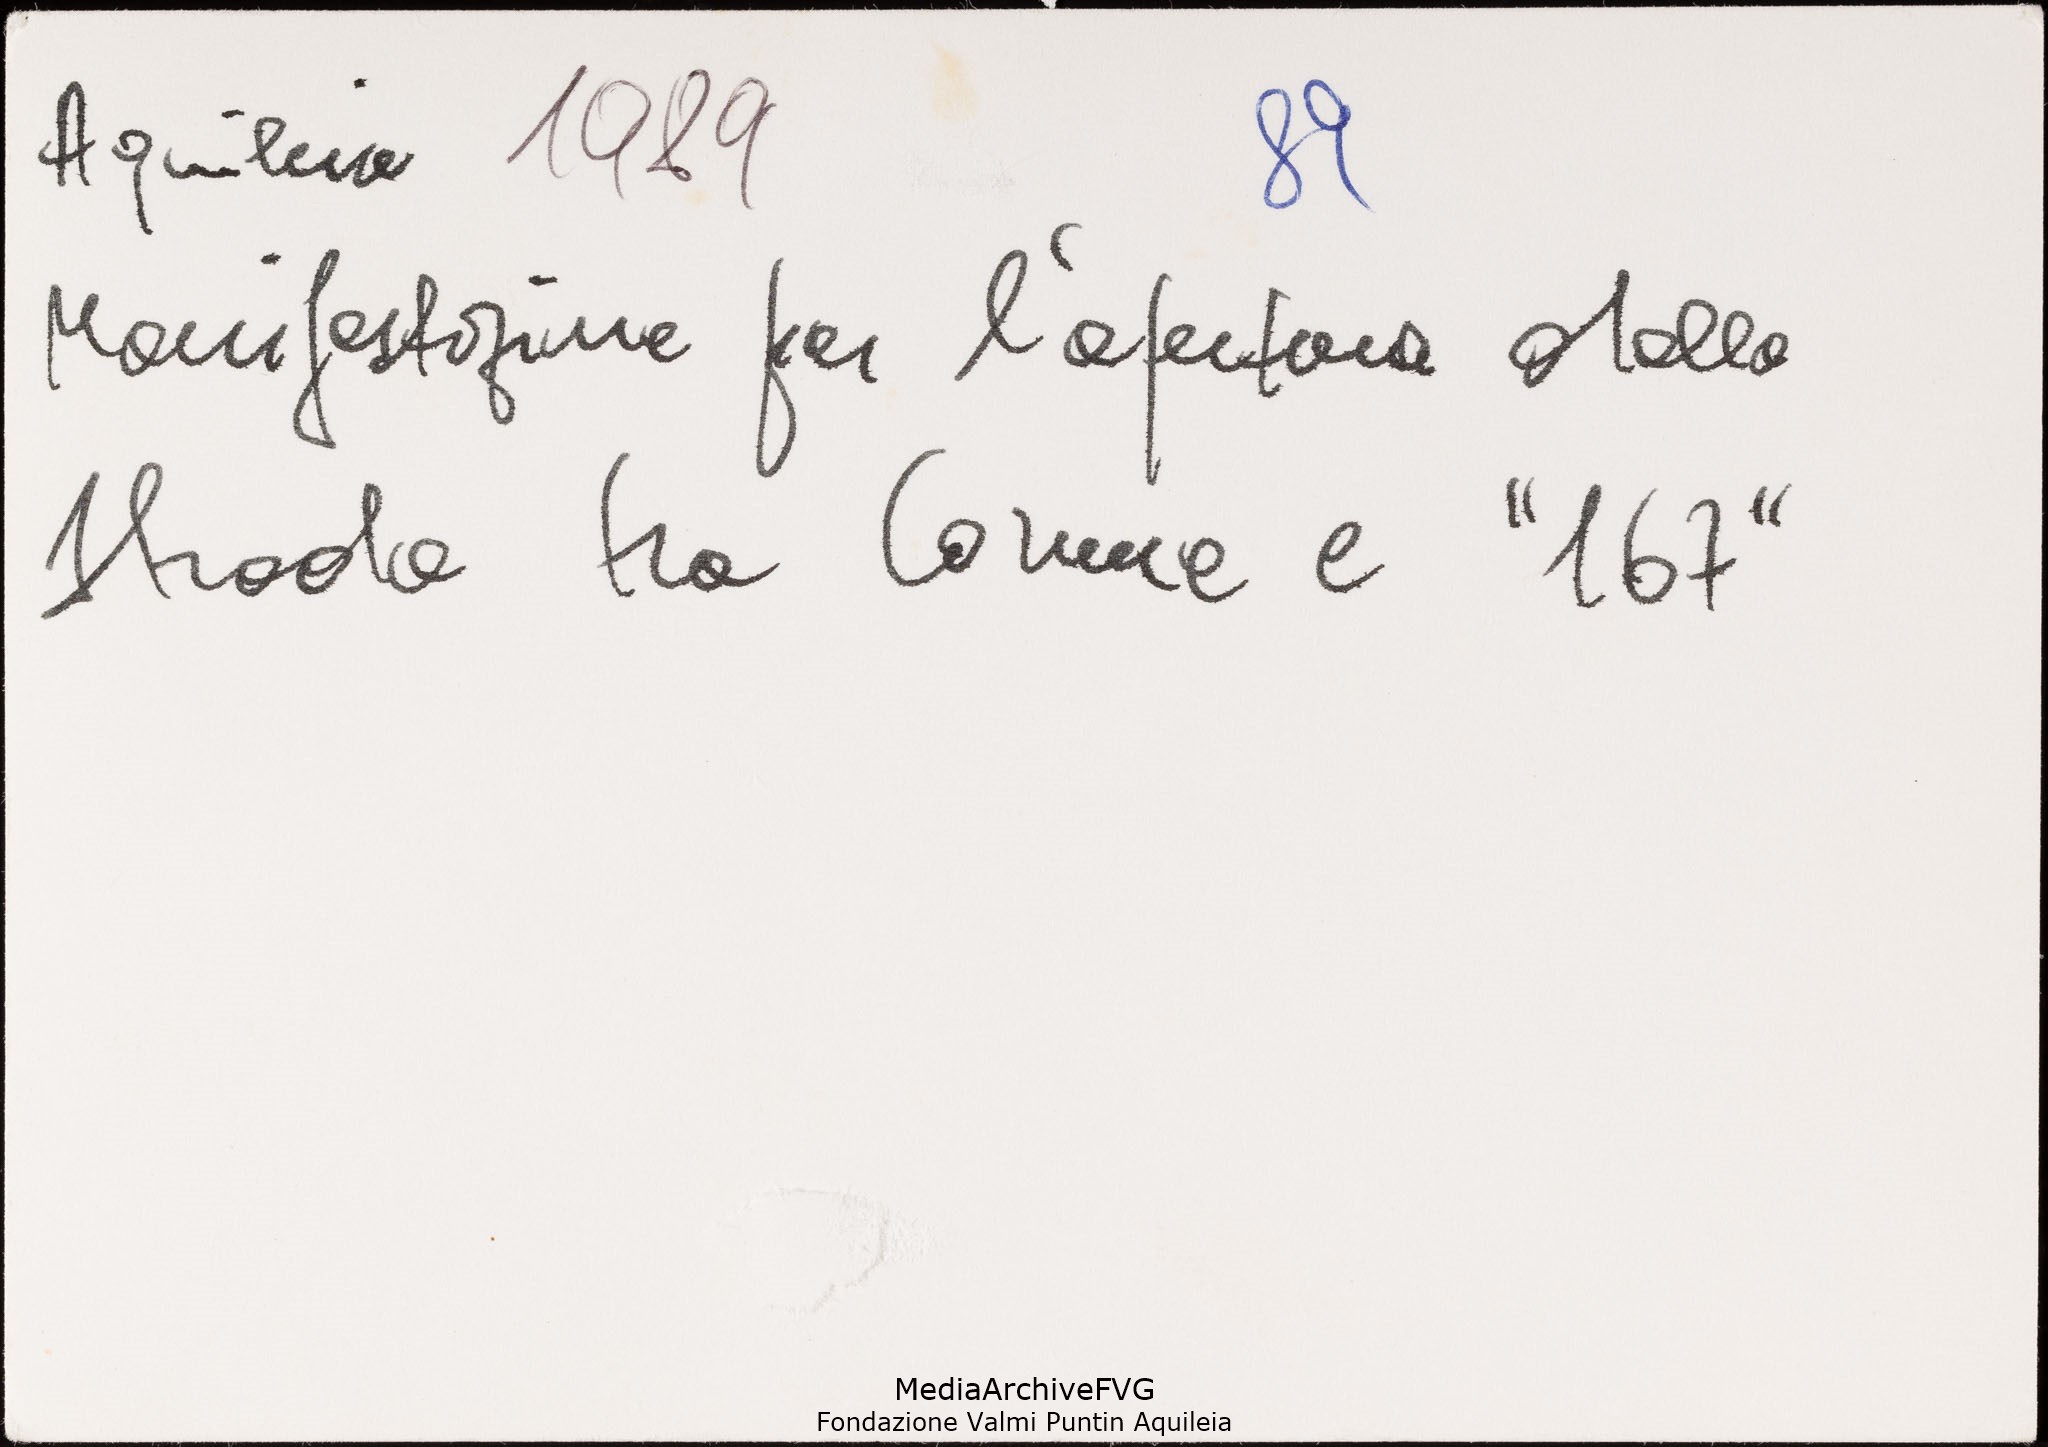 Aquileia 1989 89
Manifestazione per l'apertura della
strada tra Comune e "167"
MediaArchiveFVG
Fondazione Valmi Puntin Aquileia